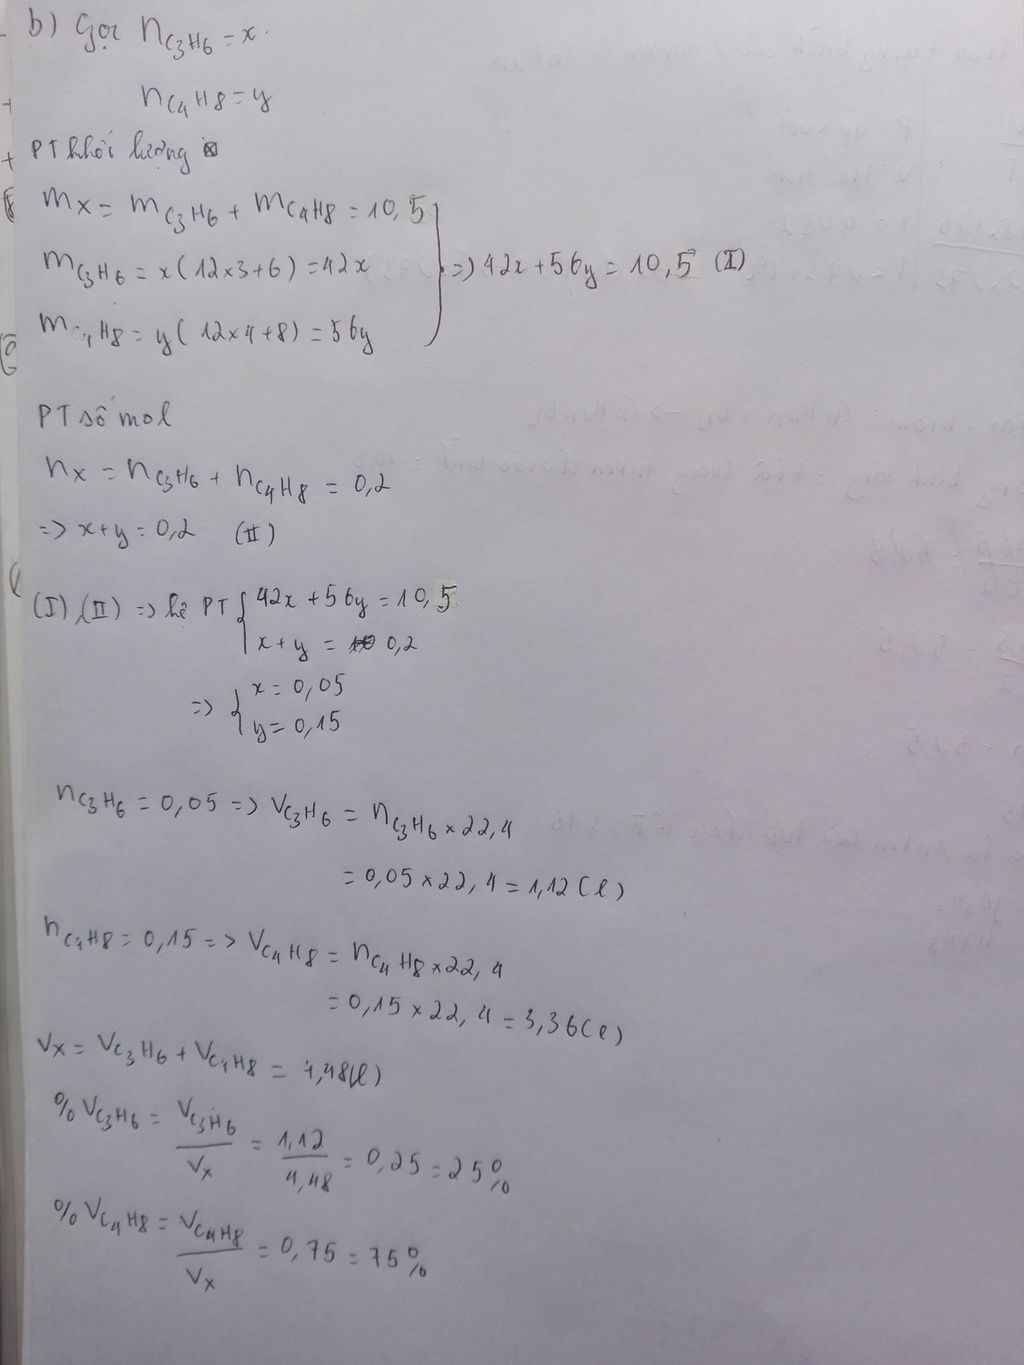 b) Gọi nC3H6 = x.
nC4H8 = y
PT khối lượng
mX = mC3H6 + mC4H8 = 10,5
mC3H6 = x(12x3+6) = 42x => 42x + 56y = 10,5 (I)
m 4H8 = y(12x4+8) = 56y
PT số mol
nX = nC3H6 + nC4H8 = 0,2
=> x+y = 0,2 (II)
(I),(II) => hệ PT { 42x + 56y = 10,5
x + y = 0,2
=> { x = 0,05
y = 0,15
nC3H6 = 0,05 => VC3H6 = nC3H6 x 22,4
= 0,05 x 22,4 = 1,12 (l)
nC4H8 = 0,15 => VC4H8 = nC4H8 x 22,4
= 0,15 x 22,4 = 3,36 (l)
VX = VC3H6 + VC4H8 = 4,48 (l)
%VC3H6 = VC3H6/VX = 1,12/4,48 = 0,25 = 25%
%VC4H8 = VC4H8/VX = 0,75 = 75%